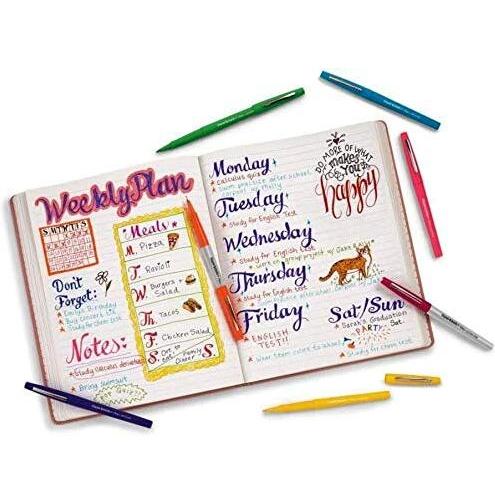 Weekly Plan
S M T W T F S
Don't
Forget:
Emily's Birthday
Buy Concert Tix
Study for Chem Test
Notes:
Study Calculus
Bring Swimsuit
POP QUIZ!!
Meals
M. Pizza
T. Ravioli
W. Burgers +
Salad
Th. Tacos
F. Chicken Salad
S. Out to eat
Family Dinner S.
Monday
Calculus quiz
Swim practice after school
carpool w/ Molly
Tuesday
Study for English Test
Wednesday
Study for English test
Work on group project w/ Jake &
Thursday
Study for English Test
after school
Friday
ENGLISH
TEST!!
Wear team colors to school
DO MORE OF WHAT
makes
YOU
happy
Sat/Sun
Sarah's Graduation
PARTY Sat.
Study for chem test